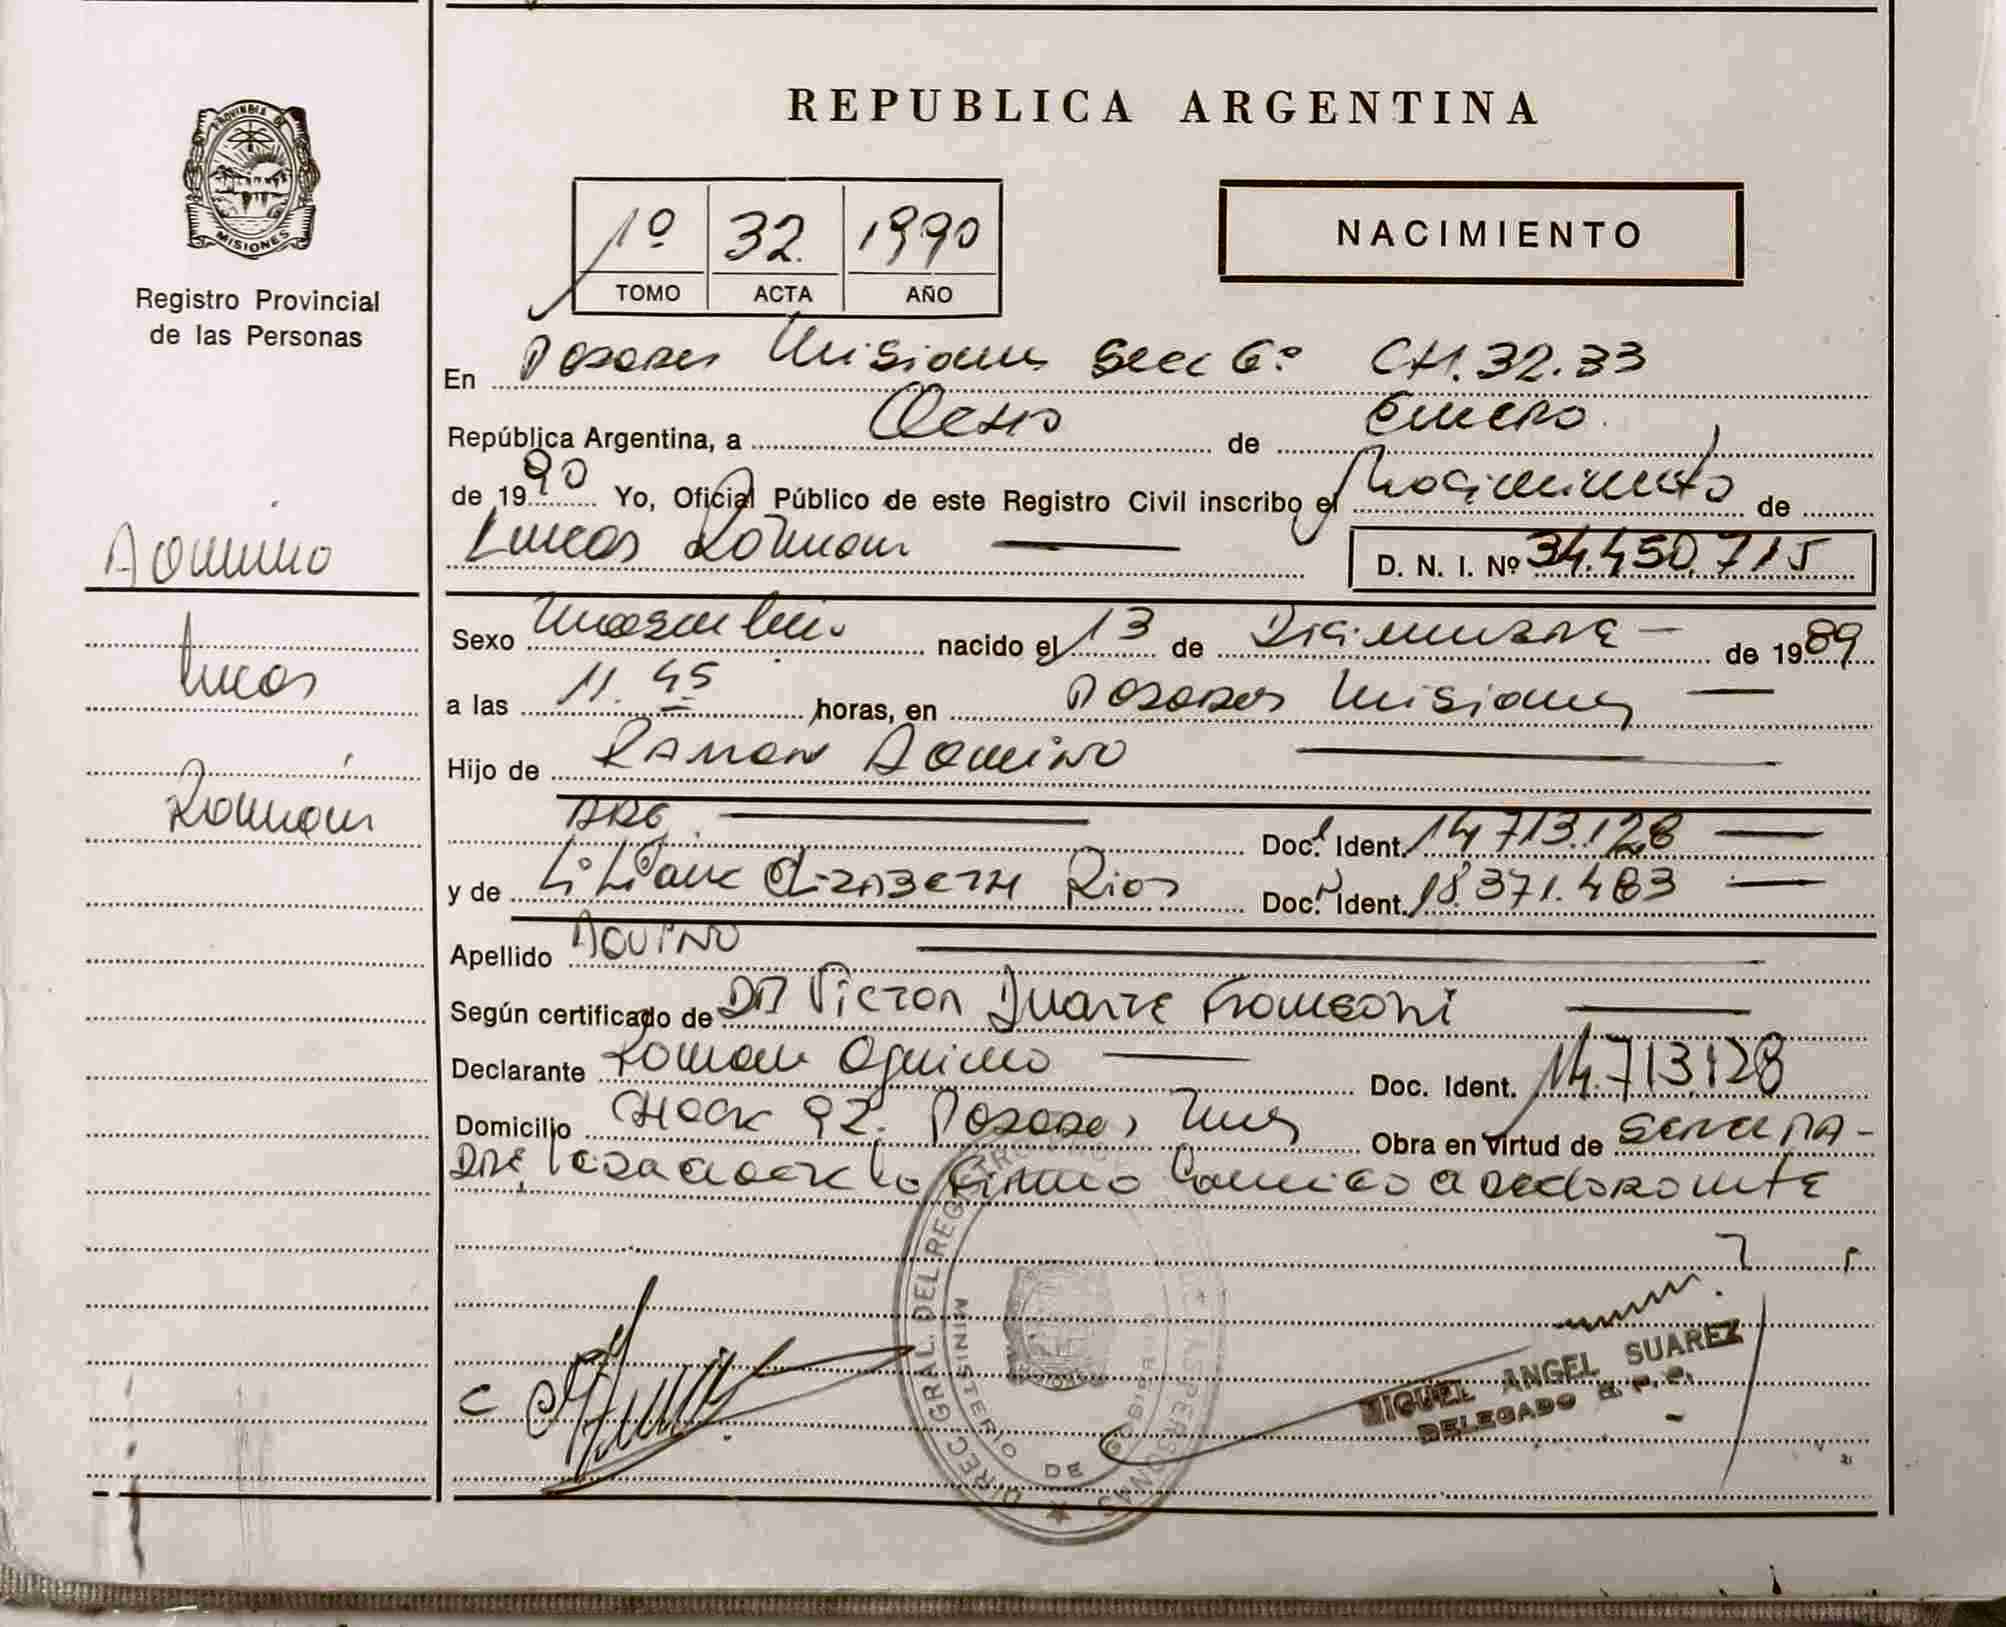 PROVINCIA DE
MISIONES
Registro Provincial
de las Personas
Aquino
Lucas
Román
REPUBLICA ARGENTINA
1º 32. 1990
TOMO ACTA AÑO
NACIMIENTO
En Posadas Misiones Secc 6º CH.32.33
República Argentina, a Ocho de Enero.
de 1990 Yo, Oficial Público de este Registro Civil inscribo el Nacimiento de
Lucas Román D. N. I. Nº 34.450.715
Sexo Masculino nacido el 13 de Diciembre de 1989
a las 11.45 horas, en Posadas Misiones
Hijo de Ramon Aquino
ARG. Doc. Ident. 14.713.128
y de Liliana Elizabeth Rios Doc. Ident. 18.371.483
Apellido Aquino
Según certificado de DR Victor Duarte
Declarante Roman Aquino Doc. Ident. 14.713.128
Domicilio 92. Posadas, Mnes Obra en virtud de
firmo conmigo
DIREC GRAL DEL REG DE LAS PERSONAS
MINISTERIO DE GOBIERNO
MIGUEL ANGEL SUAREZ
DELEGADO R. P. P.